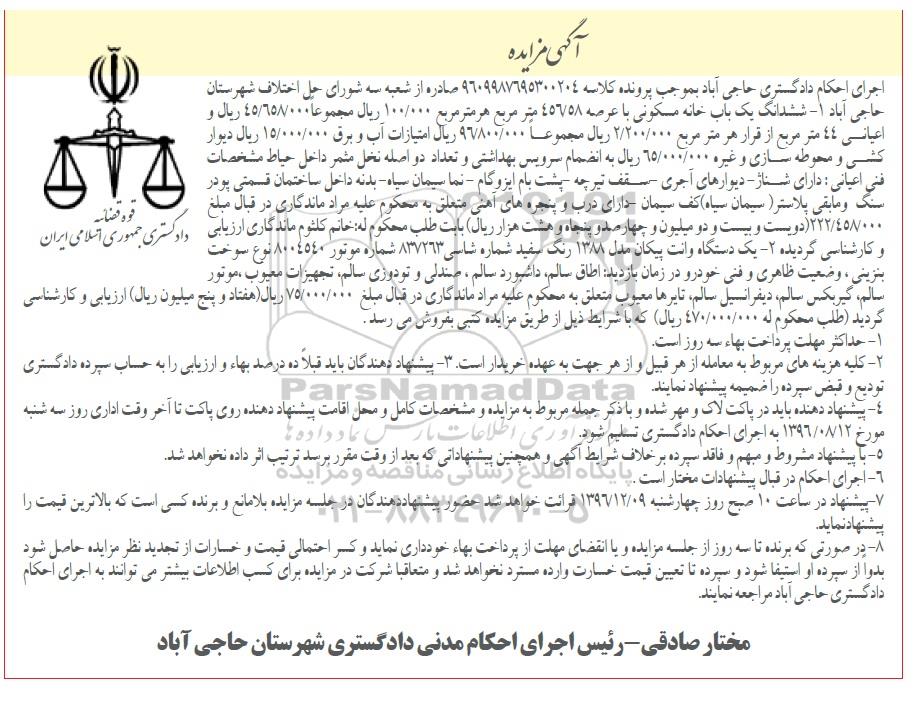 آگهی مزایده
قوه قضائیه
دادگستری جمهوری اسلامی ایران
اجرای احکام دادگستری حاجی آباد بموجب پرونده کلاسه ۹۶۰۹۹۸۷۶۹۵۳۰۰۲۰۴ صادره از شعبه سه شورای حل اختلاف شهرستان
حاجی آباد ۱- ششدانگ یک باب خانه مسکونی با عرصه ۴۵۶/۵۸ متر مربع هرمترمربع ۱۰۰/۰۰۰ ریال مجموعاً ۴۵/۶۵۸/۰۰۰ ریال و
اعیانـی ۴۴ متر مربع از قرار هر متر مربع ۲/۲۰۰/۰۰۰ ریال مجموعـا ۹۶/۸۰۰/۰۰۰ ریال امتیازات آب و برق ۱۵/۰۰۰/۰۰۰ ریال دیوار
کشـی و محوطه سـازی و غیره ۶۵/۰۰۰/۰۰۰ ریال به انضمام سرویس بهداشتی و تعداد دو اصله نخل مثمر داخل حیاط مشخصات
فنی اعیانی : دارای شـناژ- دیوارهای آجری -سـقف تیرچه -پشت بام ایزوگام - نما سیمان سیاه- بدنه داخل ساختمان قسمتی پودر
سنگ ومابقی پلاستر( سیمان سیاه)کف سیمان -دارای درب و پنجره های آهنی متعلق به محکوم علیه مراد ماندگاری در قبال مبلغ
۲۲۲/۴۵۸/۰۰۰(دویست و بیست و دو میلیون و چهارصدو پنجاه و هشت هزار ریال) بابت طلب محکوم له: خانم کلثوم ماندگاری ارزیابی
و کارشناسی گردیده ۲- یک دستگاه وانت پیکان مدل ۱۳۸۸ رنگ سفید شماره شاسی ۸۳۷۲۶۳ شماره موتور ۸۰۰۴۵۴۰ نوع سوخت
بنزینی ، وضعیت ظاهری و فنی خودرو در زمان بازدید: اطاق سالم، داشبورد سالم ، صندلی و تودوزی سالم، تجهیزات معیوب ،موتور
سالم، گیربکس سالم، دیفرانسیل سالم، تایرها معیوب متعلق به محکوم علیه مراد ماندگاری در قبال مبلغ ۷۵/۰۰۰/۰۰۰ ریال(هفتاد و پنج میلیون ریال) ارزیابی و کارشناسی
گردید (طلب محکوم له ۴۷۰/۰۰۰/۰۰۰ ریال) که با شرایط ذیل از طریق مزایده کتبی بفروش می رسد .
۱- حداکثر مهلت پرداخت بهاء سه روز است.
۲-کلیه هزینه های مربوط به معامله از هر قبیل و از هر جهت به عهده خریدار است. ۳- پیشنهاد دهندگان باید قبلاً ده درصد بهاء و ارزیابی را به حساب سپرده دادگستری
تودیع و قبض سپرده را ضمیمه پیشنهاد نمایند.
۴- پیشنهاد دهنده باید در پاکت لاک و مهر شده و با ذکر جمله مربوط به مزایده و مشخصات کامل و محل اقامت پیشنهاد دهنده روی پاکت تا آخر وقت اداری روز سه شنبه
مورخ ۱۳۹۶/۰۸/۱۲ به اجرای احکام دادگستری تسلیم شود.
۵- با پیشنهاد مشروط و مبهم و فاقد سپرده برخلاف شرایط آگهی و همچنین پیشنهاداتی که بعد از وقت مقرر برسد ترتیب اثر داده نخواهد شد.
۶- اجرای احکام در قبال پیشنهادات مختار است .
۷-پیشنهاد در ساعت ۱۰ صبح روز چهارشنبه ۱۳۹۶/۱۲/۰۹ قرائت خواهد شد حضور پیشنهاددهندگان در جلسه مزایده بلامانع و برنده کسی است که بالاترین قیمت را
پیشنهادنماید.
۸-در صورتی که برنده تا سه روز از جلسه مزایده و یا انقضای مهلت از پرداخت بهاء خودداری نماید و کسر احتمالی قیمت و خسارات از تجدید نظر مزایده حاصل شود
بدواً از سپرده او استیفا شود و سپرده تا تعیین قیمت خسارت وارده مسترد نخواهد شد و متعاقبا شرکت در مزایده برای کسب اطلاعات بیشتر می توانند به اجرای احکام
دادگستری حاجی آباد مراجعه نمایند.
مختار صادقی-رئیس اجرای احکام مدنی دادگستری شهرستان حاجی آباد
ParsNamadData
فن آوری اطلاعات پارس نماد داده ها
پایگاه اطلاع رسانی مناقصه و مزایده
۰۲۱-۸۸۳۴۹۶۷۰-۵